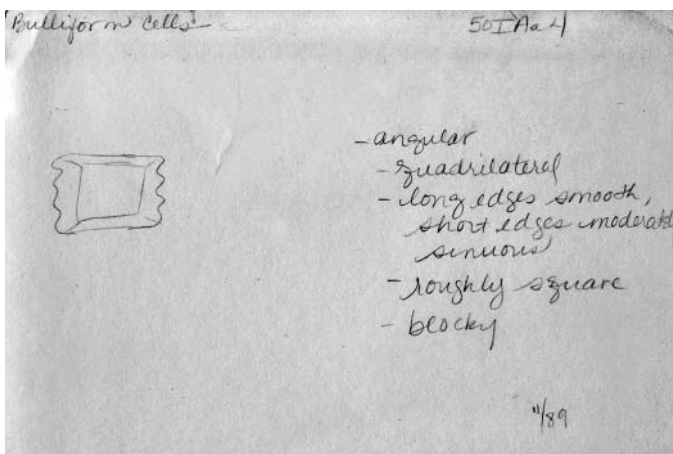 Bulliform cells
50IAa4
- angular
- quadrilateral
- long edges smooth,
short edges moderate
sinuous
- roughly square
- blocky
11/89